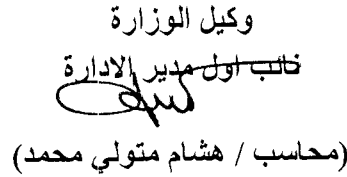 وكيل الوزارة
نائب اول مدير الادارة
(محاسب / هشام متولي محمد)